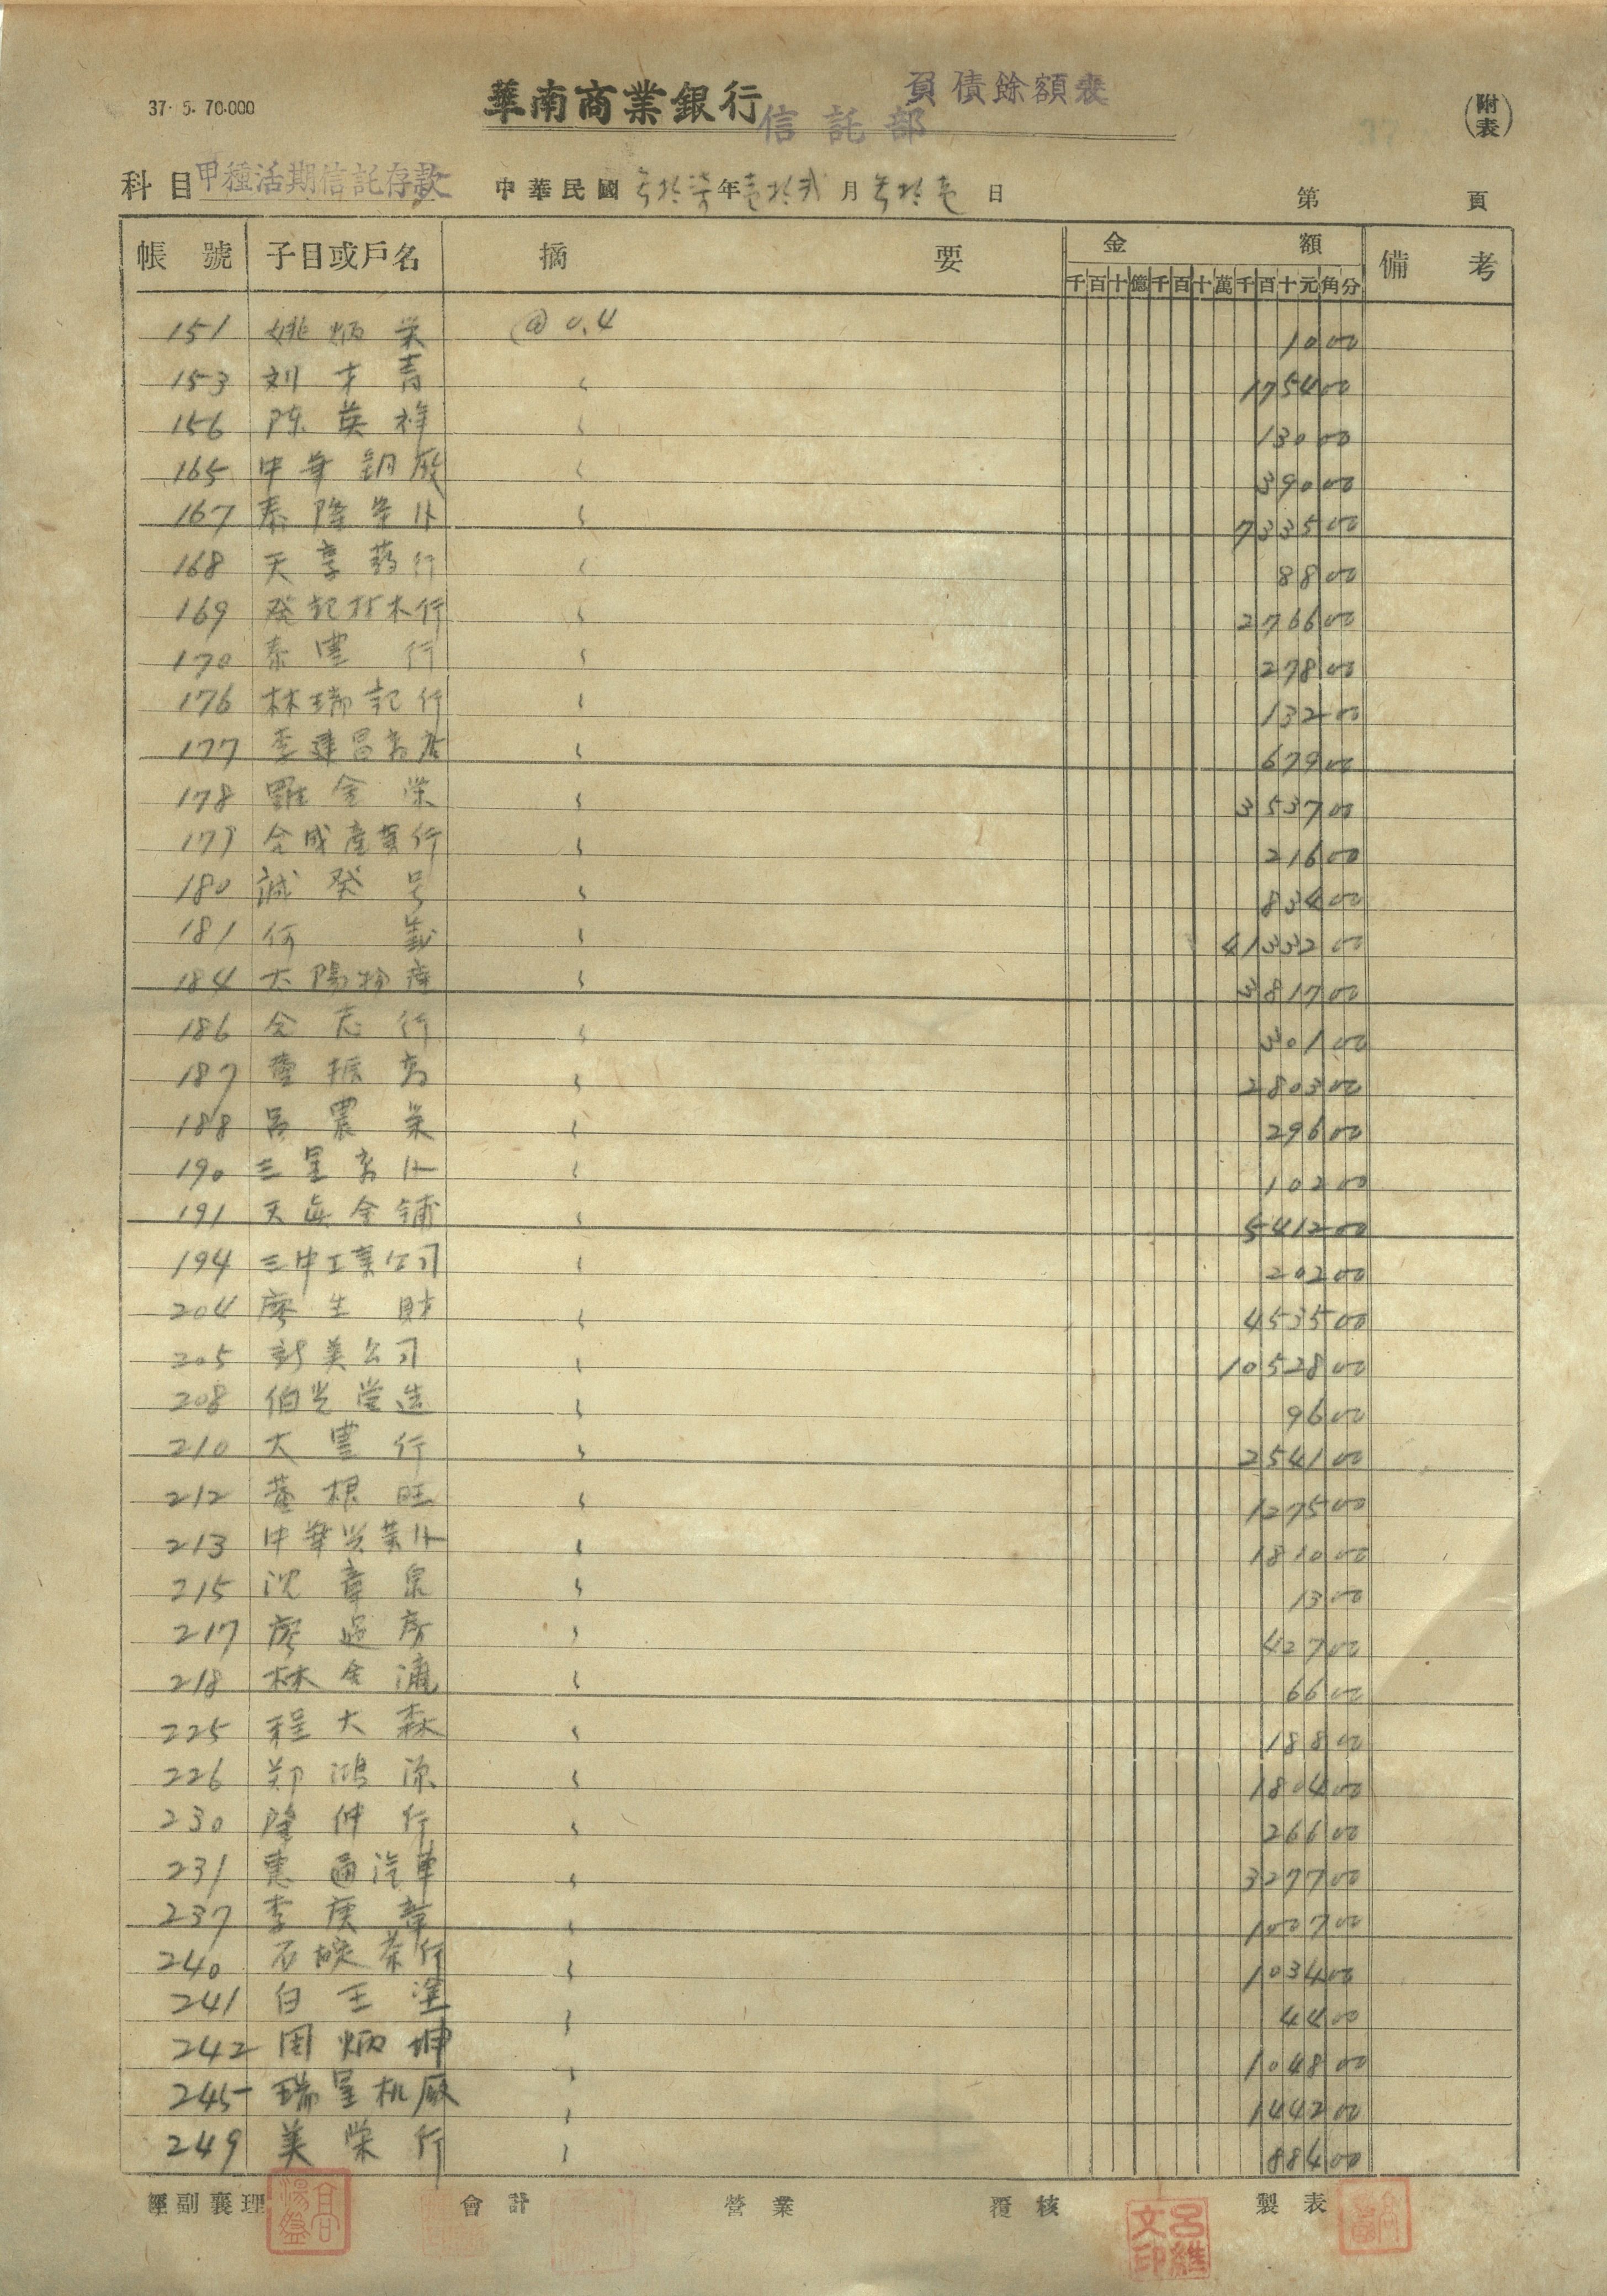 37. 5. 70.000
華南商業銀行 信託部 負債餘額表
(附表)
科目 甲種活期信託存款 中華民國 叁拾柒 年 壹拾貳 月 叁拾壹 日 第 頁
帳號 子目或戶名 摘要 金額 備考
千百十億千百十萬千百十元角分
151 姚炳栄 @0.4 1000
153 刘才青 〃 175400
156 陈英祥 〃 13000
165 中華鋼厰 〃 39000
167 泰隆 〃 733500
168 天享葯行 〃 8800
169 発記材木行 〃 276600
170 泰豊行 〃 27800
176 林瑞記行 〃 13200
177 李建昌商店 〃 67900
178 羅金栄 〃 353700
179 合成産業行 〃 21600
180 誠発号 〃 83400
181 何 〃 4133200
184 太陽物産 〃 381700
186 合志行 〃 30100
187 董振 〃 280300
188 呂農栄 〃 29600
190 三星 〃 10200
191 天真金鋪 〃 541200
194 三中工業公司 〃 20200
204 廖生財 〃 453500
205 新美公司 〃 1052800
208 伯光営造 〃 9600
210 大豊行 〃 254100
212 董根旺 〃 127500
213 中華兴業 〃 181000
215 沈章泉 〃 1300
217 廖過房 〃 42700
218 林金 〃 6600
225 程大森 〃 18800
226 郑鴻源 〃 180400
230 隆仲行 〃 26600
231 東通汽車 〃 327700
237 李庚章 〃 100700
240 石碇茶行 〃 103400
241 白王塗 〃 4400
242 周炳坤 〃 104800
245 瑞星机厰 〃 144200
249 美栄行 〃 88400
經副襄理 會計 營業 覆核 製表
呂維文印